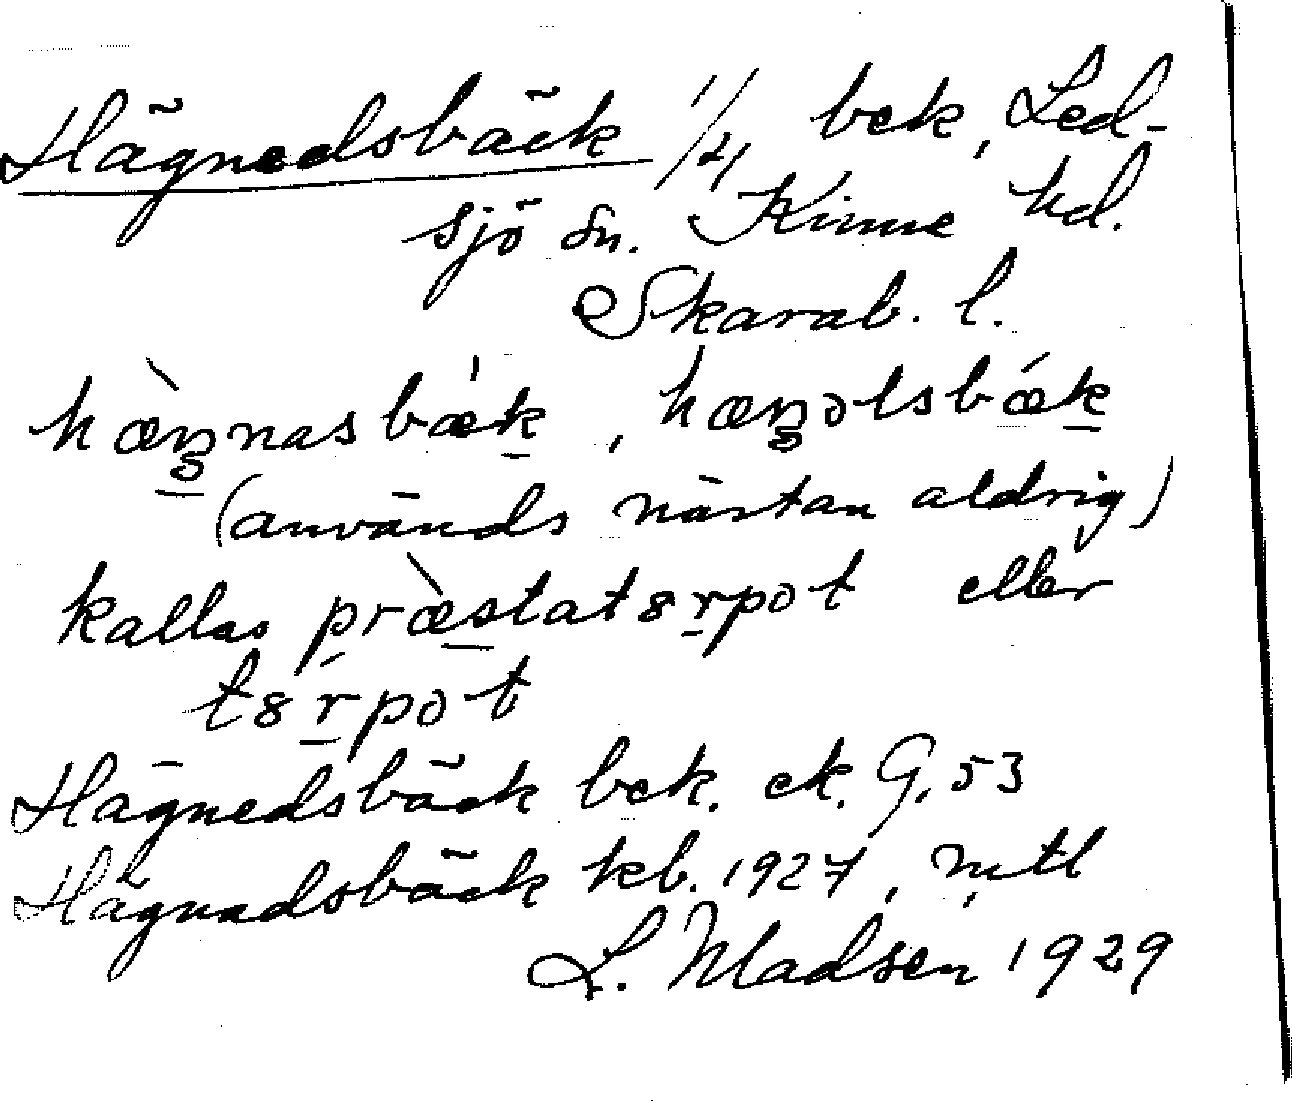 Hägnedsbäck 1/4, bek, Led-
sjö sn. Kinne hd.
Skarab. l.
hæ̀ŋnasbæ̍k, hæŋəlsbǽk
(används nästan aldrig)
kallas præ̀stat8rpət eller
t8ŕpət
Hägnedsbäck bek. ek. G. 53
Hägnadsbäck kb. 1927, mtl
L. Madsen 1929